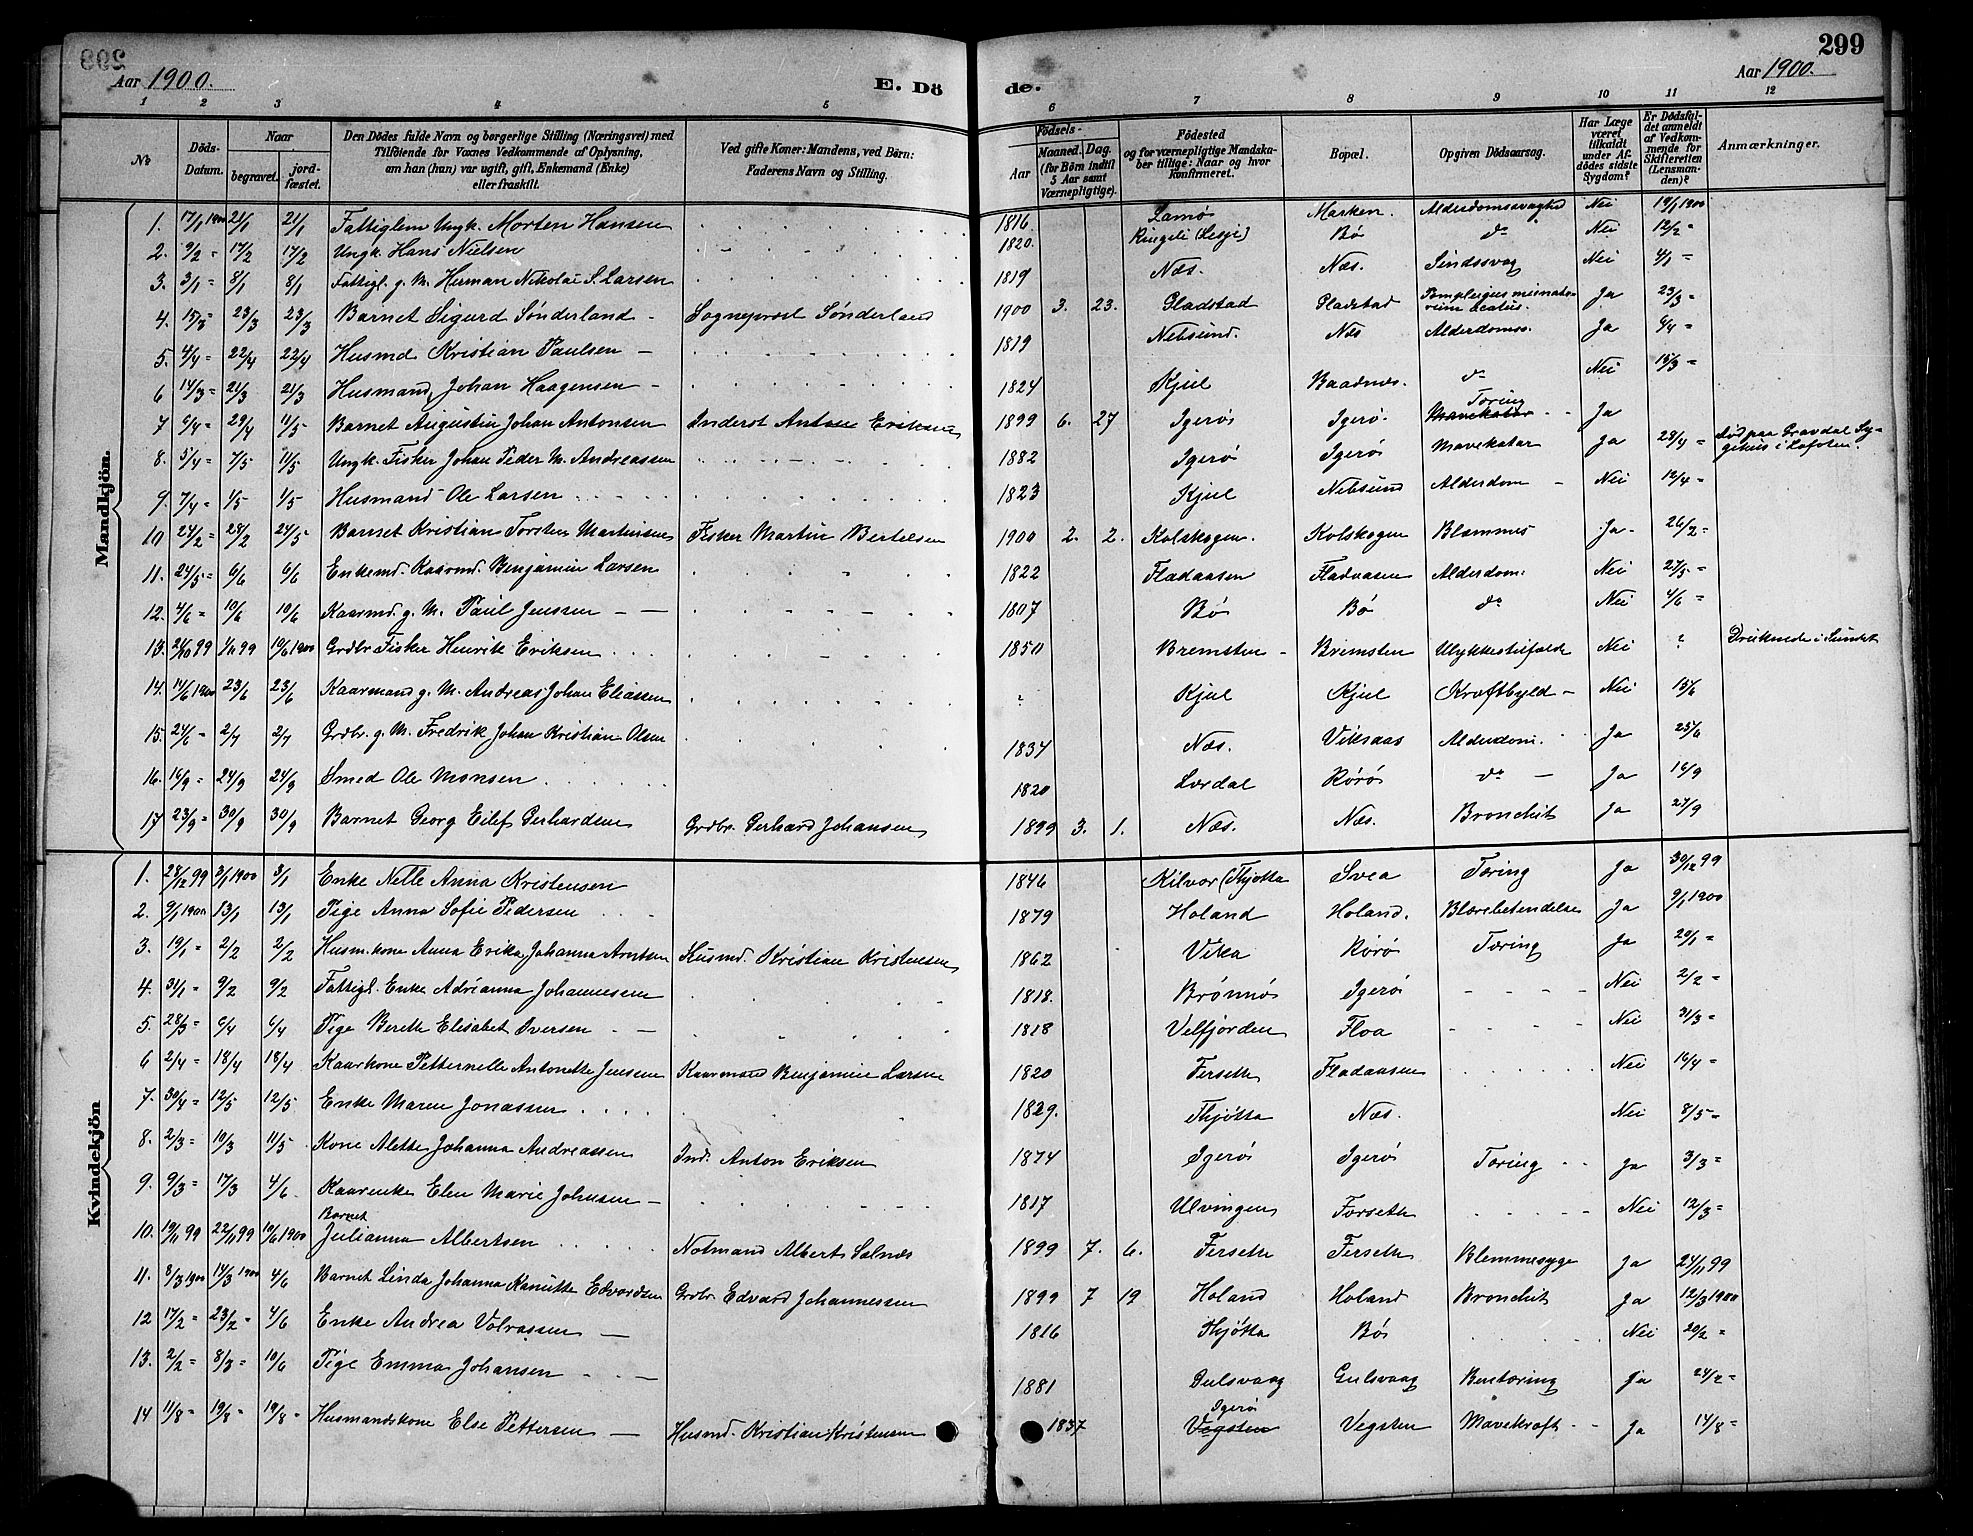 299
Aar 1900. E. Dö de. Aar 1900.
1 2 3 4 5 6 7 8 9 10 11 12
No
Döds-Datum.
Naar
begravet.
jord-fæstet.
Den Dödes fulde Navn og borgerlige Stilling (Næringsvei) med
Tilföiende for Voxnes Vedkommende af Oplysning,
om han (hun) var ugift, gift, Enkemand (Enke)
eller fraskilt.
Ved gifte Koner: Mandens, ved Börn:
Faderens Navn og Stilling.
Födsels-
Aar
Maaned. Dag.
(for Börn indtil
5 Aar samt
Værnepligtige).
Födested
og for værnepligtige Mandska-
ber tillige: Naar og hvor
konfirmeret.
Bopæl.
Opgiven Dödsaarsag.
Har Læge
været
tilkaldt
under Af-
dödes sidste
Sygdom?
Er Dödsfal-
det anmeldt
af Vedkom-
mende for
Skifteretten
(Lensman-
den)?
Anmærkninger.
Mandkjön.
1. 17/1 1900 21/1 21/1 Fattiglem Ungk. Morten Hansen 1816 Lamø Marken. Alderdomssvaghed Nei 19/1 1900
2. 9/2 = 17/2 17/2 Ungk. Hans Nielsen 1820. Ringeli (Lesje) Bø do Nei 12/2 =
3. 3/1 = 8/1 8/1 Fattigl. g. M. Herman Nikolai S. Larsen 1819 Næs. Næs. Sindssvag Nei 4/1 =
4. 15/3 = 23/3 23/3 Barnet Sigurd Sønderland - Sogneprest Sønderland 1900 3. 23. Gladstad Gladstad Ja 23/3 =
5. 4/4 = 22/4 22/4 Husmd Kristian Paulsen - 1819 Nebsund. Næs Alderdomss. Ja 6/4 =
6 14/3 = 21/3 21/3 Husmand, Johan Haagensen - 1824 Kjul Baadnes. do Nei 15/3 =
7 6/4 = 29/4 11/5 Barnet Augustin Johan Antonsen Inderst Anton Eriksen 1899 6. 27 Igerø Igerø. Mavekatar Tæring Ja
8. 5/4 = 7/5 11/5 Ungk. Fisker Johan Peder M. Andreassen 1882 Igerø Igerø Mavekatar Ja 28/4 = død paa Gravdal Sy-
gehus i Lofoten.
9. 7/4 = 1/5 1/5 Husmand Ole Larsen 1823 Kjul Nebsund Alderdom - Nei 12/4 =
10 24/2 = 28/2 24/5 Barnet Kristian Torsten Martinsen Fisker Martin Bertelsen 1900 2. 2. Kolskogen. Kolskogen Blæmmes Ja - 26/2 =
11. 24/5 = 6/6 6/6 Enkemd. Kaarmd. Benjamin Larsen 1822 Fladaasen Fladaasen Alderdom. Nei 27/5 =
12. 4/6 = 10/6 10/6 Kaarmd. g. M. Paul Jenssen - - 1807 Bø Bø do Nei 4/6 =
13. 21/10 99 1/11 99 10/6 1900 Grdbr. Fisker Henrik Eriksen 1850 Bremsten - Bremsten Ulykkestilfælde Nei ? Druknede i Sundet
14. 14/6 1900 23/6 23/6 Kaarmand g. M. Andreas Johan Eliassen ? Kjul Kjul Kræftbyld - Nei 15/6
15. 24/6 = 2/7 2/7 Grdbr. g. M. Fredrik Johan Kristian Olsen 1834 Næs. Viksaas Alderdom. Ja 25/6
16. 16/9 = 24/9 24/9 Smed Ole Monsen 1820 Lærdal Rørø do - Ja 16/9
17 23/9 = 30/9 30/9 Barnet Georg Eilef Gerhardsen Grdbr. Gerhard Johansen 1899 3. 1. Næs. Næs. Bronchit Ja 27/9
Kvindekjön
1. 28/12 99 3/1 1900 3/1 Enke Nelle Anna Kristensen 1846 Kilvær (Thjøtta Svea Tæring Ja 30/12 99
2. 9/1 1900 13/1 13/1 Pige Anna Sofie Pedersen 1879 Holand Holand. Blærebetendelse Ja 9/1 1900
3. 19/1 = 2/2 2/2 Husm.kone Anna Erika Johanna Arntsen Husmd. Kristian Kristensen 1862 Vika Rørø Tæring Ja 20/1 =
4. 31/1 = 9/2 9/2 Fattigl. Enke Adrianna Johannesen 1818. Brønnø Igerø Nei 2/2 =
5. 28/3 = 6/4 6/4 Pige Bereth Elisabet Iversen - 1818 Velfjorden Floa Nei 31/3 =
6 2/4 = 18/4 18/4 Kaarkone Petternelle Antonette Jenssen Kaarmand Benjamin Larsen 1820 Ferseth Fladaasen Nei 16/4 =
7. 30/4 = 12/5 12/5 Enke Maren Jonassen 1829. Thjøtta Næs. Nei 8/5 =
8. 2/3 = 10/3 11/5 Kone Alette Johanna Andreassen Ind. Anton Eriksen 1874 Igerø Igerø Tæring Ja 3/3 =
9. 9/3 = 17/3 4/6 Kaarenke Elen Marie Johnsen - 1817 Ulvingen Forseth Nei 12/3 =
10. 19/11 99 22/11 99 10/6 1900 Barnet Julianna Albertsen Notmand Albert Salnæs 1899 7. 6. Ferseth Ferseth Blemmesyge Ja 24/11 99
11. 8/3 1900 14/3 1900 4/6 Barnet Linda Johanna Kanutte Edvardsen Grdbr Edvard Johannessen 1899 7 19 Holand Holand Bronchit Ja 12/3 1900
12 17/2 = 23/2 = 4/6 Enke Andrea Volrassen - 1816 Thjøtta Bø Nei 20/2 =
13. 2/2 = 8/3 = 10/6 Pige Emma Johansen 1881 Gulsvaag Gulsvaag Bentæring Ja 24/2 =
14 11/8 = 19/8 = 19/8 = Husmandskone Else Pettersen - Husmd. Kristian Kristensen 1837 Vegsten Igerø Vegsten Mavekræft Ja 14/8 =